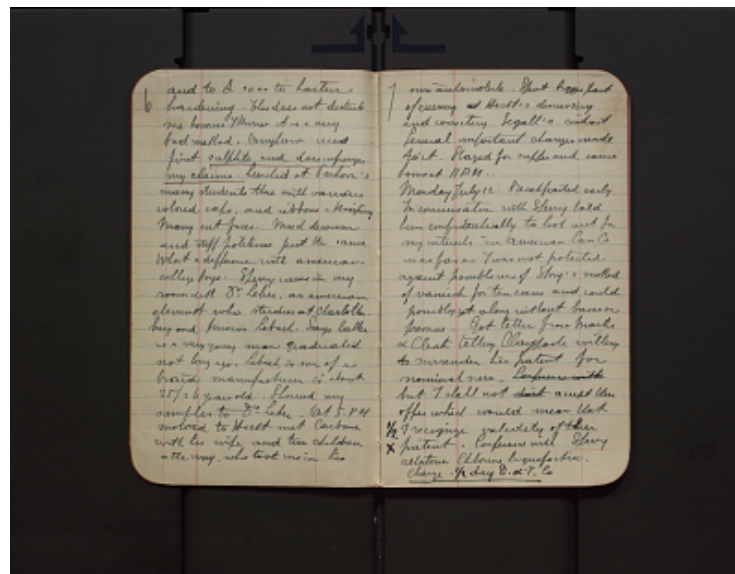 6
and to D so as to hasten
hardening. This does not disturb
me because Thurner it is a very
bad method. Camylow used
first sulphite and does infringe
my claims. Lunched at
many students there with various
colored caps, and ribbons.
Many cut faces. Much decorum
and stiff politeness just the same
What a difference with american
college boys. Sperry was in my
room with Dr Leber, an american
chemist who studies at Charlotten
burg and knows Lebach. Says latter
is a very young man graduated
not long ago. Lebach is son of a
manufacturer is about
25/26 years old. Showed my
samples to Dr Leber. At 5 PM
motored to Hecht met Carbone
with his wife and two children
on the way, who took me in his
7
own automobile. Spent
of evening at Hecht's discussing
and correcting Segall's contract
Several important changes made
in it. Stayed for supper and came
home at 11 PM.
Monday July 12. Breakfasted early.
In conversation with Sperry told
him confidentially to look out for
my interests in American Can Co
in as far as I was not protected
against possible use of Story's method
of varnish for tin cans and could
possibly get along without
formic. Got letter from Marks
& Clerk telling willing
to surrender his patent for
nominal sum. Conference with
but I shall not accept this
offer which would mean that
½ I recognize validity of their
x patent. Conference with Sperry
relative Chlorine liquefaction.
Charge ½ day D. & T. Co